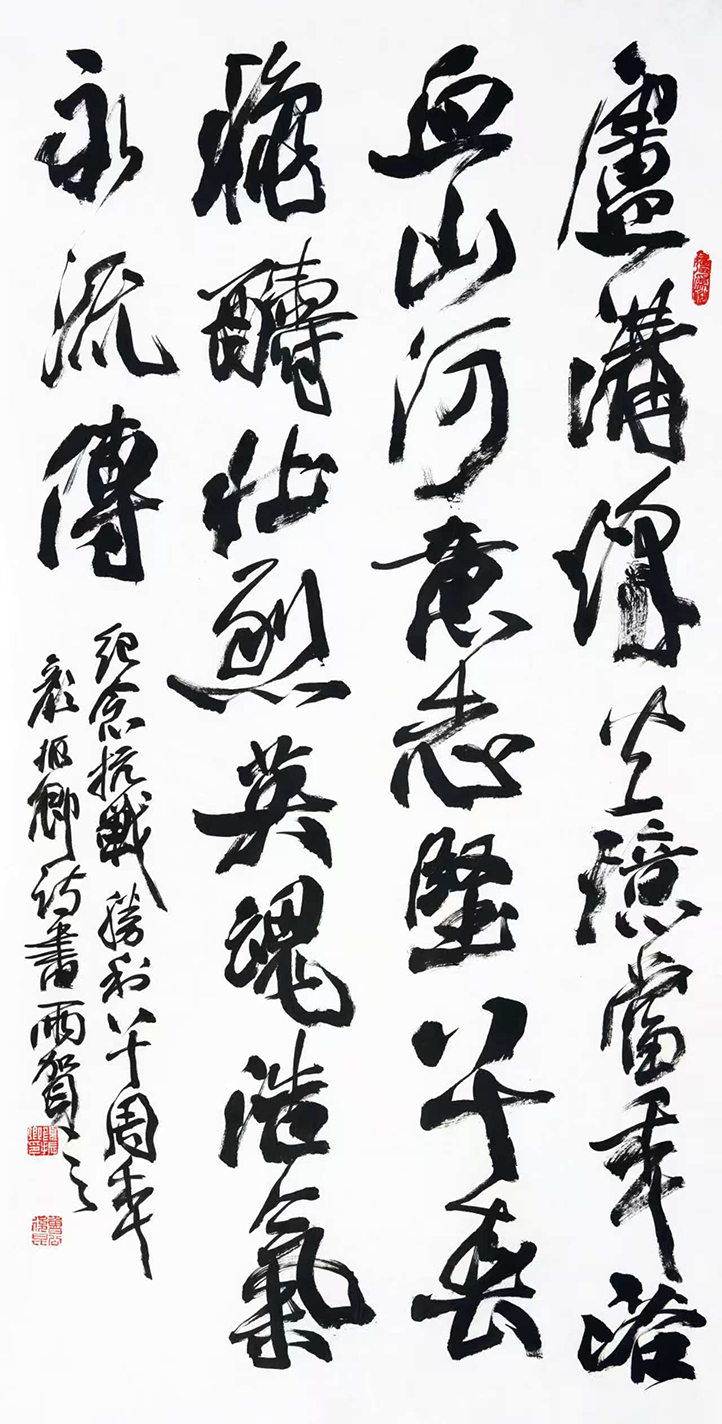 盧溝烽火憶當年浴
血山河意志堅八十春
穐醻壯烈英魂浩氣
永流傳
紀念抗戰勝利八十周年
振卿诗書賀之